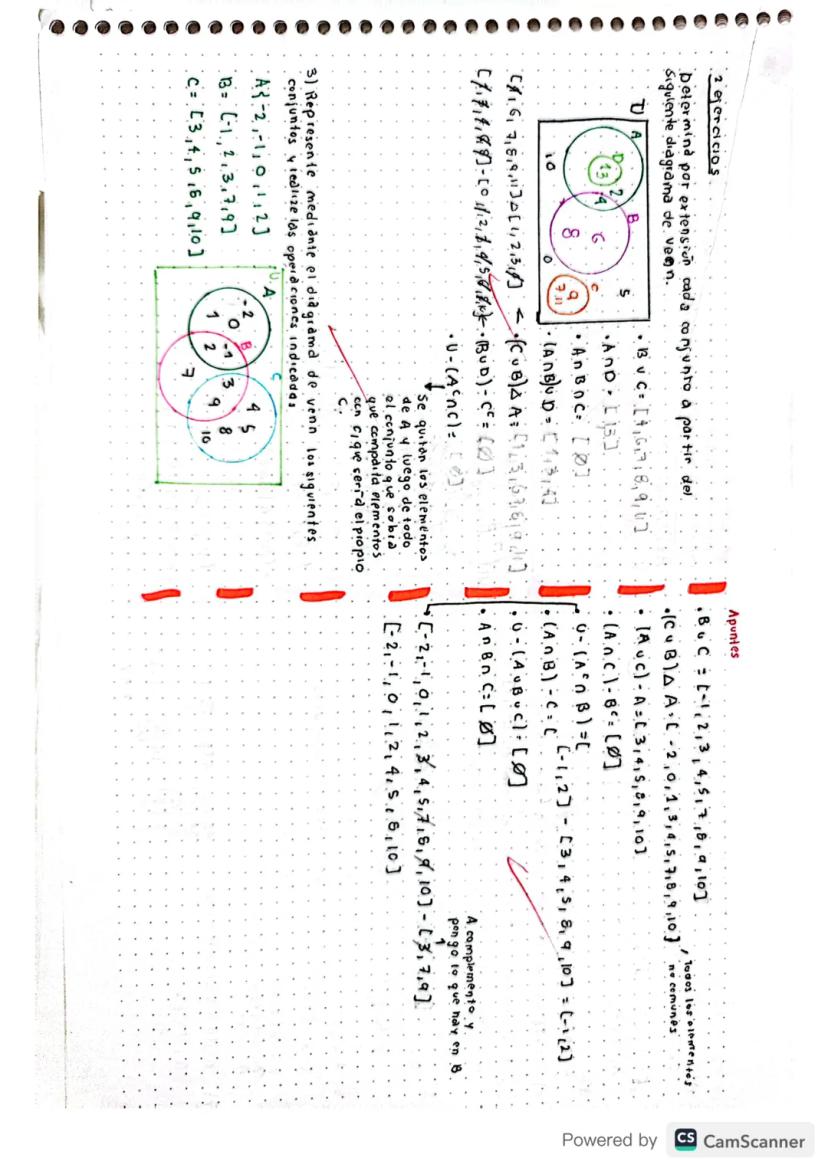 2 ejercicios
Determina por extensión cada conjunto a partir del
siguiente diagrama de venn.
U
A
D
13
2
4
B
6
8
C
9
7,11
5
10
0
• B ∪ C = [4,6,7,8,9,11]
• A∩D = [1,3]
• A∩B∩C = [∅]
• (A∩B)∪D = [1,3,4]
[4,6,7,8,9,11] △ [1,2,3,4] < • (C∪B) △ A = [1,2,3,6,7,8,9,11]
• (B∪D) - Cᶜ = [∅]
• U - (Aᶜ∩C) = [∅]
Se quitan los elementos
de A y luego de todo
el conjunto que sobra
que comparta elementos
con C, que seria el propio
C.
3) Represente mediante el diagrama de venn los siguientes
conjuntos y realize las operaciones indicadas
A{-2,-1,0,1,2]
B = [-1,2,3,7,9]
C = [3,4,5,8,9,10]
U
A
-2
0
1
B
-1
2
C
3
9
7
4
5
8
10
Apuntes
• B ∪ C = [-1,2,3,4,5,7,8,9,10]
• (C ∪ B) △ A = [-2,0,1,3,4,5,7,8,9,10] / Todos los elementos
no comunes
• (A ∪ C) - A = [3,4,5,8,9,10]
• (A ∩ C) - Bᶜ = [∅]
• U - (Aᶜ ∩ B) = [
• (A ∩ B) - C = [ [-1,2] - [3,4,5,8,9,10] = [-1,2]
• U - (A ∪ B ∪ C) = [∅]
• A ∩ B ∩ C = [∅]
A complemento y
pongo lo que hay en B
• [-2,-1,0,1,2,3,4,5,7,8,9,10] - [3,7,9]
[-2,-1,0,1,2,4,5,8,10]
Powered by CS CamScanner